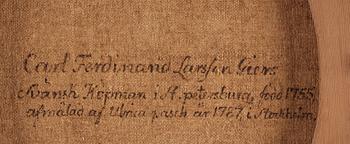 Carl Ferdinand Larsson Giers
Svänsk Kopman i St. petersburg, född 1755,
afmålad af Ulrica pasch år 1787, i Stockholm.